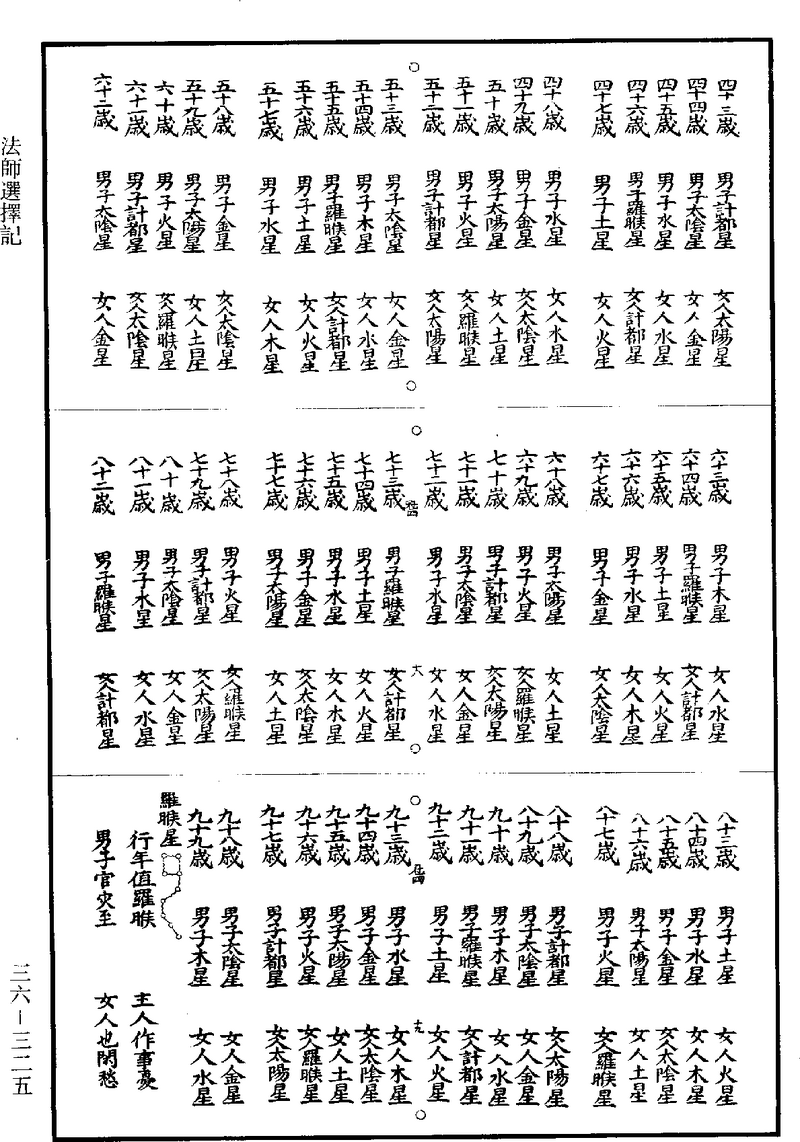 法師選擇記
四十三歲 男子計都星 女人太陽星
四十四歲 男子太陰星 女人金星
四十五歲 男子水星 女人水星
四十六歲 男子羅睺星 女人計都星
四十七歲 男子土星 女人火星
四十八歲 男子水星 女人水星
四十九歲 男子金星 女人太陰星
五十歲 男子太陽星 女人土星
五十一歲 男子火星 女人羅睺星
五十二歲 男子計都星 女人太陽星
五十三歲 男子太陰星 女人金星
五十四歲 男子木星 女人水星
五十五歲 男子羅睺星 女人計都星
五十六歲 男子土星 女人火星
五十七歲 男子水星 女人木星
五十八歲 男子金星 女人太陰星
五十九歲 男子太陽星 女人土星
六十歲 男子火星 女人羅睺星
六十一歲 男子計都星 女人太陰星
六十二歲 男子太陰星 女人金星
六十三歲 男子木星 女人水星
六十四歲 男子羅睺星 女人計都星
六十五歲 男子土星 女人火星
六十六歲 男子水星 女人木星
六十七歲 男子金星 女人太陰星
六十八歲 男子太陽星 女人土星
六十九歲 男子火星 女人羅睺星
七十歲 男子計都星 女人太陽星
七十一歲 男子太陰星 女人金星
七十二歲 男子水星 女人水星
七十三歲 男子羅睺星 女人計都星
七十四歲 男子土星 女人火星
七十五歲 男子水星 女人木星
七十六歲 男子金星 女人太陰星
七十七歲 男子太陽星 女人土星
七十八歲 男子火星 女人羅睺星
七十九歲 男子計都星 女人太陽星
八十歲 男子太陰星 女人金星
八十一歲 男子水星 女人水星
八十二歲 男子羅睺星 女人計都星
八十三歲 男子土星 女人火星
八十四歲 男子水星 女人木星
八十五歲 男子金星 女人太陰星
八十六歲 男子太陽星 女人土星
八十七歲 男子火星 女人羅睺星
八十八歲 男子計都星 女人太陽星
八十九歲 男子太陰星 女人金星
九十歲 男子木星 女人水星
九十一歲 男子羅睺星 女人計都星
九十二歲 男子土星 女人火星
十九
九十三歲 男子水星 女人木星
九十四歲 男子金星 女人太陰星
九十五歲 男子太陽星 女人土星
九十六歲 男子火星 女人羅睺星
九十七歲 男子計都星 女人太陽星
九十八歲 男子太陰星 女人金星
九十九歲 男子木星 女人水星
羅睺星
行年值羅睺 主人作事憂
男子官灾至 女人也閑愁
三六－三二五